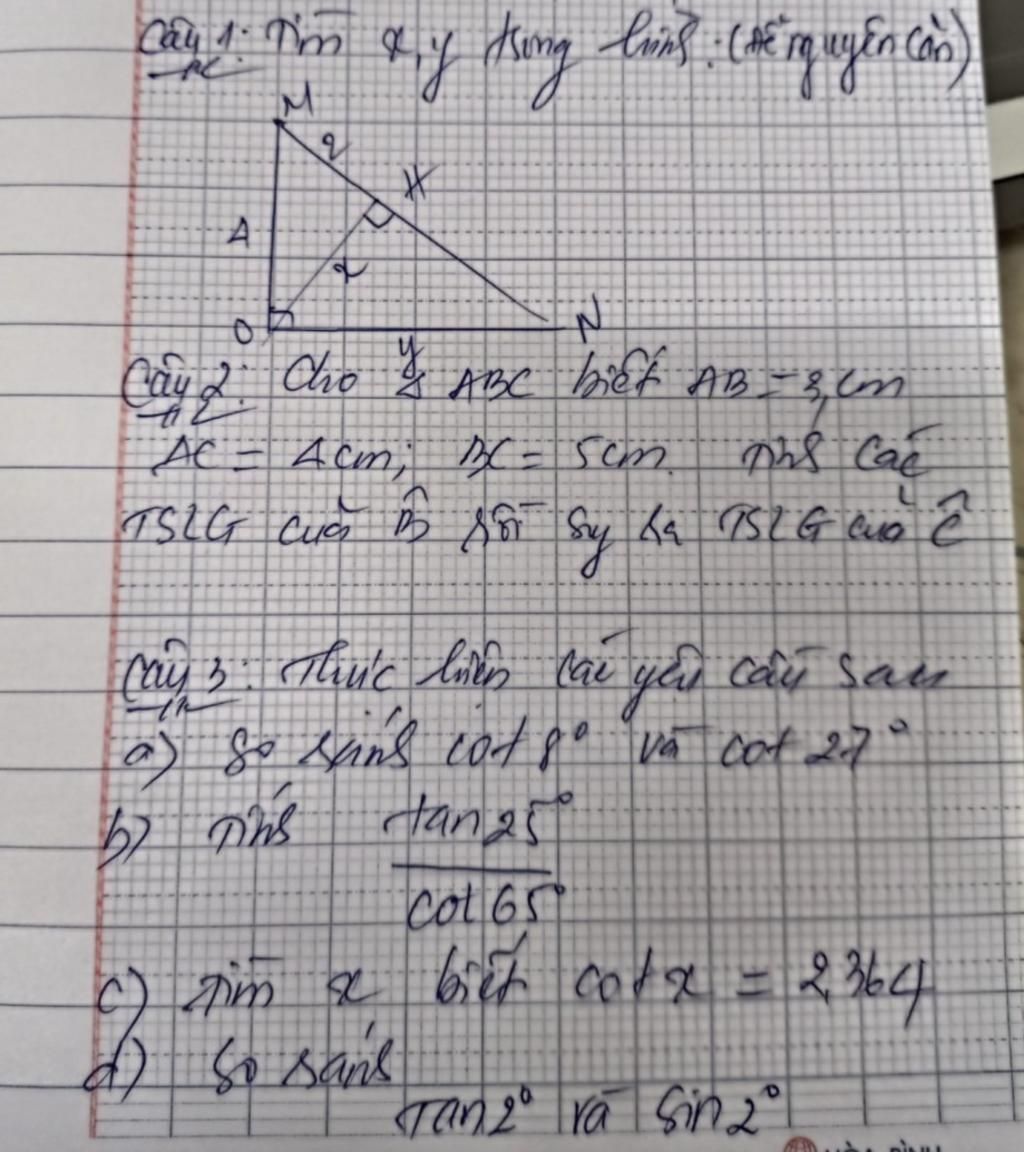 Câu 1: Tìm x, y trong hình. (để nguyên căn)
M
2
H
4
x
O
N
y
Câu 2: Cho Δ ABC biết AB = 3 cm
AC = 4cm; BC = 5cm. Tính các
TSLG của B̂ rồi suy ra TSLG của Ĉ
Câu 3: Thực hiện các yêu cầu sau
a) So sánh cot 8° và cot 27°
b) Tính tan 25°
cot 65°
c) Tìm x biết cot x = 2,364
d) So sánh
Tan 2° và Sin 2°
HÒA BÌNH